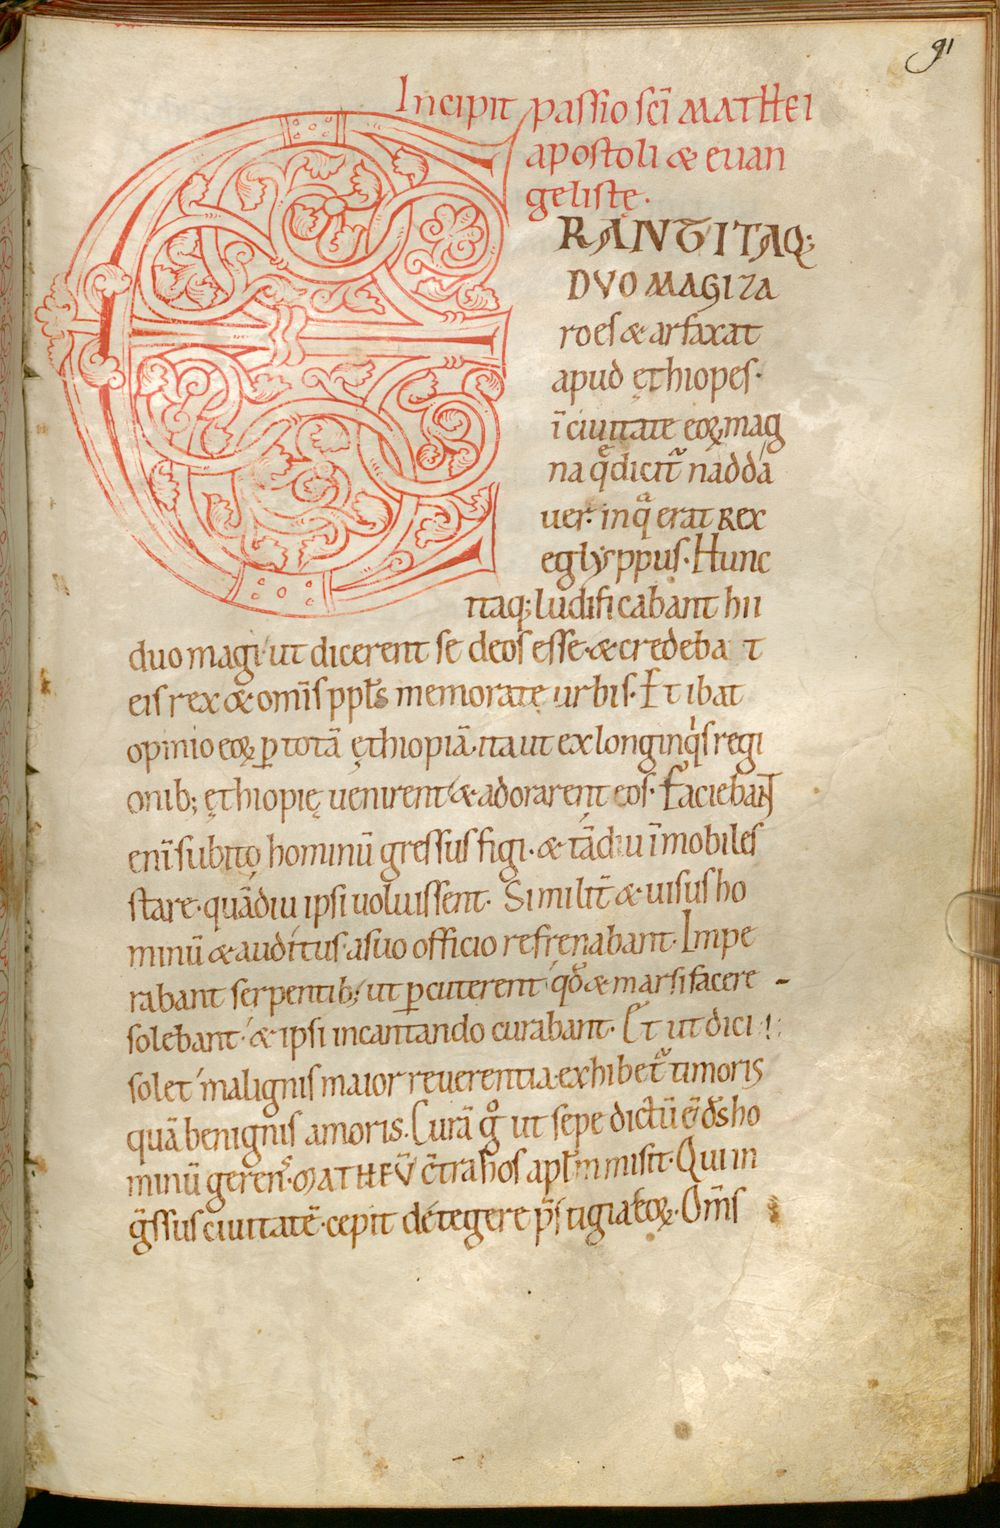 91
Incipit passio sc̄i MATHEI
apostoli & euan
geliste̜.
ERANT ITAQ;
DVO MAGI ZA
roes & arfaxat
apud e̜thiopes·
ī ciuitate eoꝝ mag
na quę dicit᷑ nadda
uer· in qua erat rex
eglyppus· Hunc
itaq; ludificabant hii
duo magi ut dicerent se deos esse· & credeba t
eis rex & om̄is ppl̄s memorate̜ urbis· Et ibat
opinio eoꝝ ꝑ totā e̜thiopiā· ita ut ex longinqͥs regi
onib; e̜thiopie̜ uenirent & adorarent eos· Faciebant
enī subito hominū gressus figi· & tādiu īmobiles
stare· quādiu ipsi uoluissent· Similit̄ & uisus ho
minū & auditus· a suo officio refrenabant· Impe
rabant serpentib; ut ꝑcuterent· qđ & marsi facere -
solebant· & ipsi incantando curabant· Et ut dici
solet malignis maior reuerentia exhibet᷑ timoris
quā benignis amoris· Curā gͦ ut sepe dictū ē d̄s ho
minū gerens· MATHEV̄ c̄tra hos apl̄m misit· Qui in
ḡssus ciuitatē· cepit detegere p̄stigia eoꝝ· Om̄s